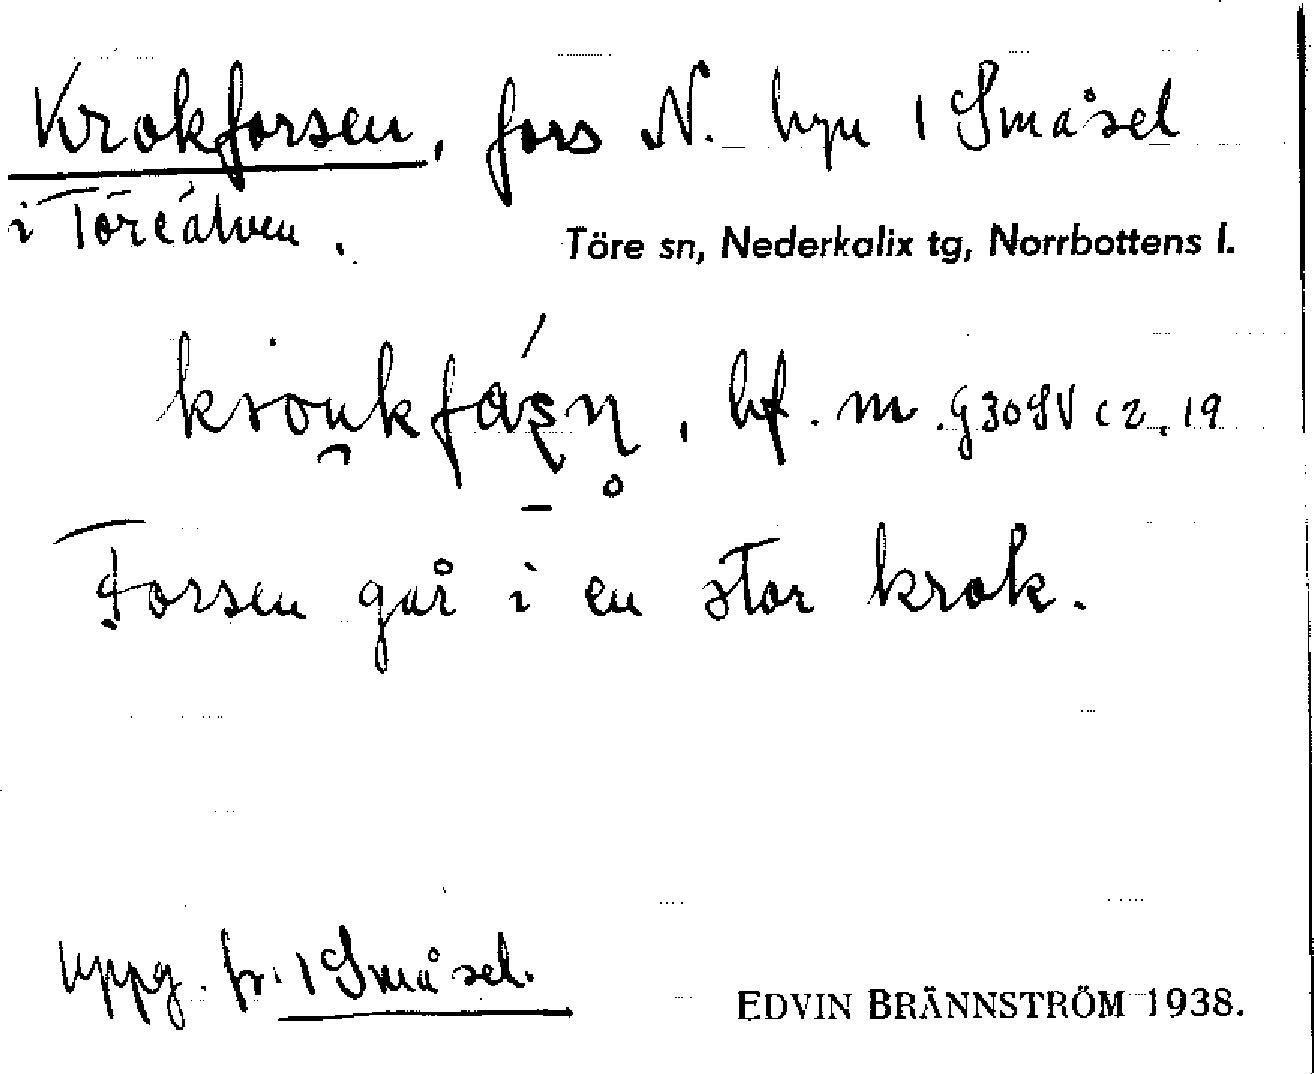 Krokforsen, fors N. byn 1 Småsel
i Töreälven.
Töre sn, Nederkalix tg, Norrbottens l.
bf. m. G30SV c 2, 19
Forsen går i en stor krok.
uppg. fr. 1 Småsel.
EDVIN BRÄNNSTRÖM 1938.